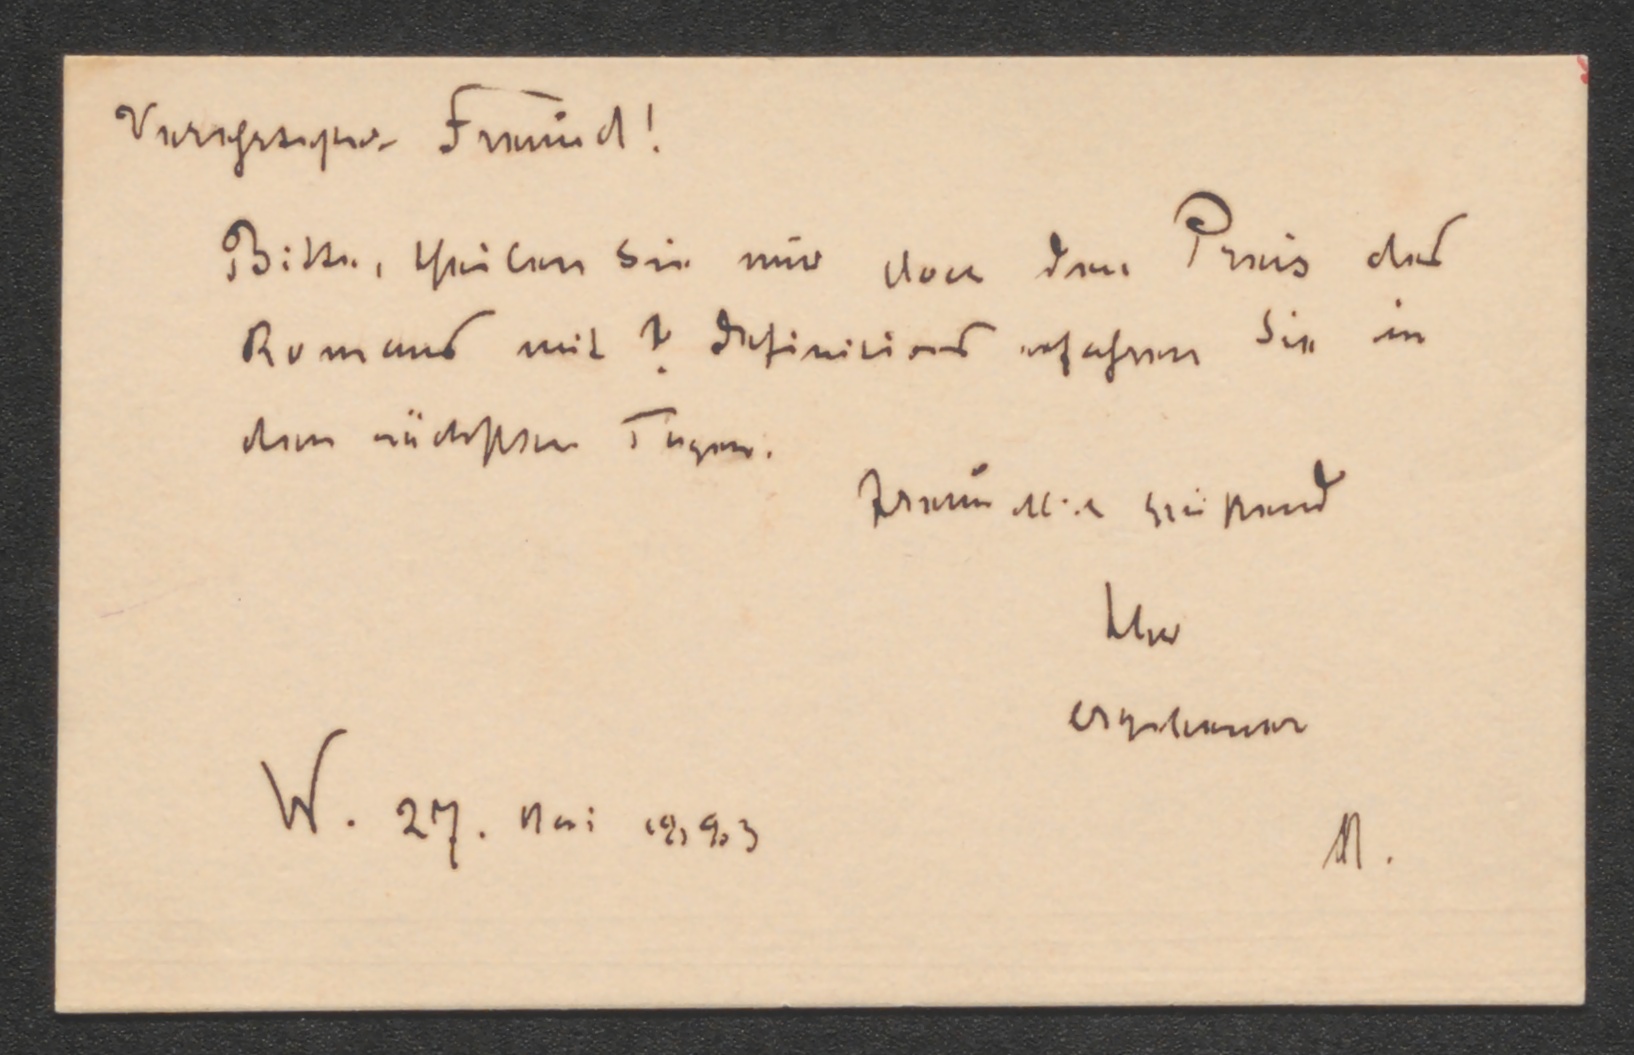 Verehrtester Freund!
Bitte, theilen Sie mir doch den Preis des
Romans mit ? Definitives erfahren Sie in
den nächsten Tagen.
Freundlich grüßend
Ihr
ergebener
W. 27. Mai 1893
M.